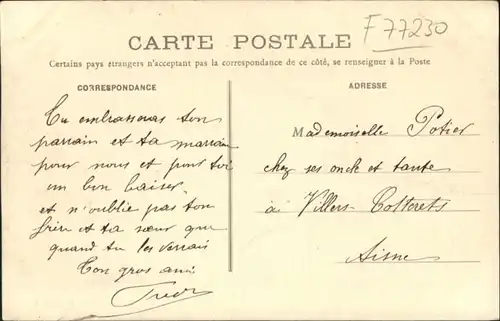 F 77230
CARTE POSTALE
Certains pays étrangers n'acceptant pas la correspondance de ce côté, se renseigner à la Poste
CORRESPONDANCE
Tu embrasseras ton
parrain et ta marrain
pour nous et pour toi
un bon baiser
et n'oublie pas ton
frère et ta sœur que
quand tu les verrais
Ton gros ami
ADRESSE
Mademoiselle Potier
chez ses oncle et tante
à Villers-Cotterets
Aisne